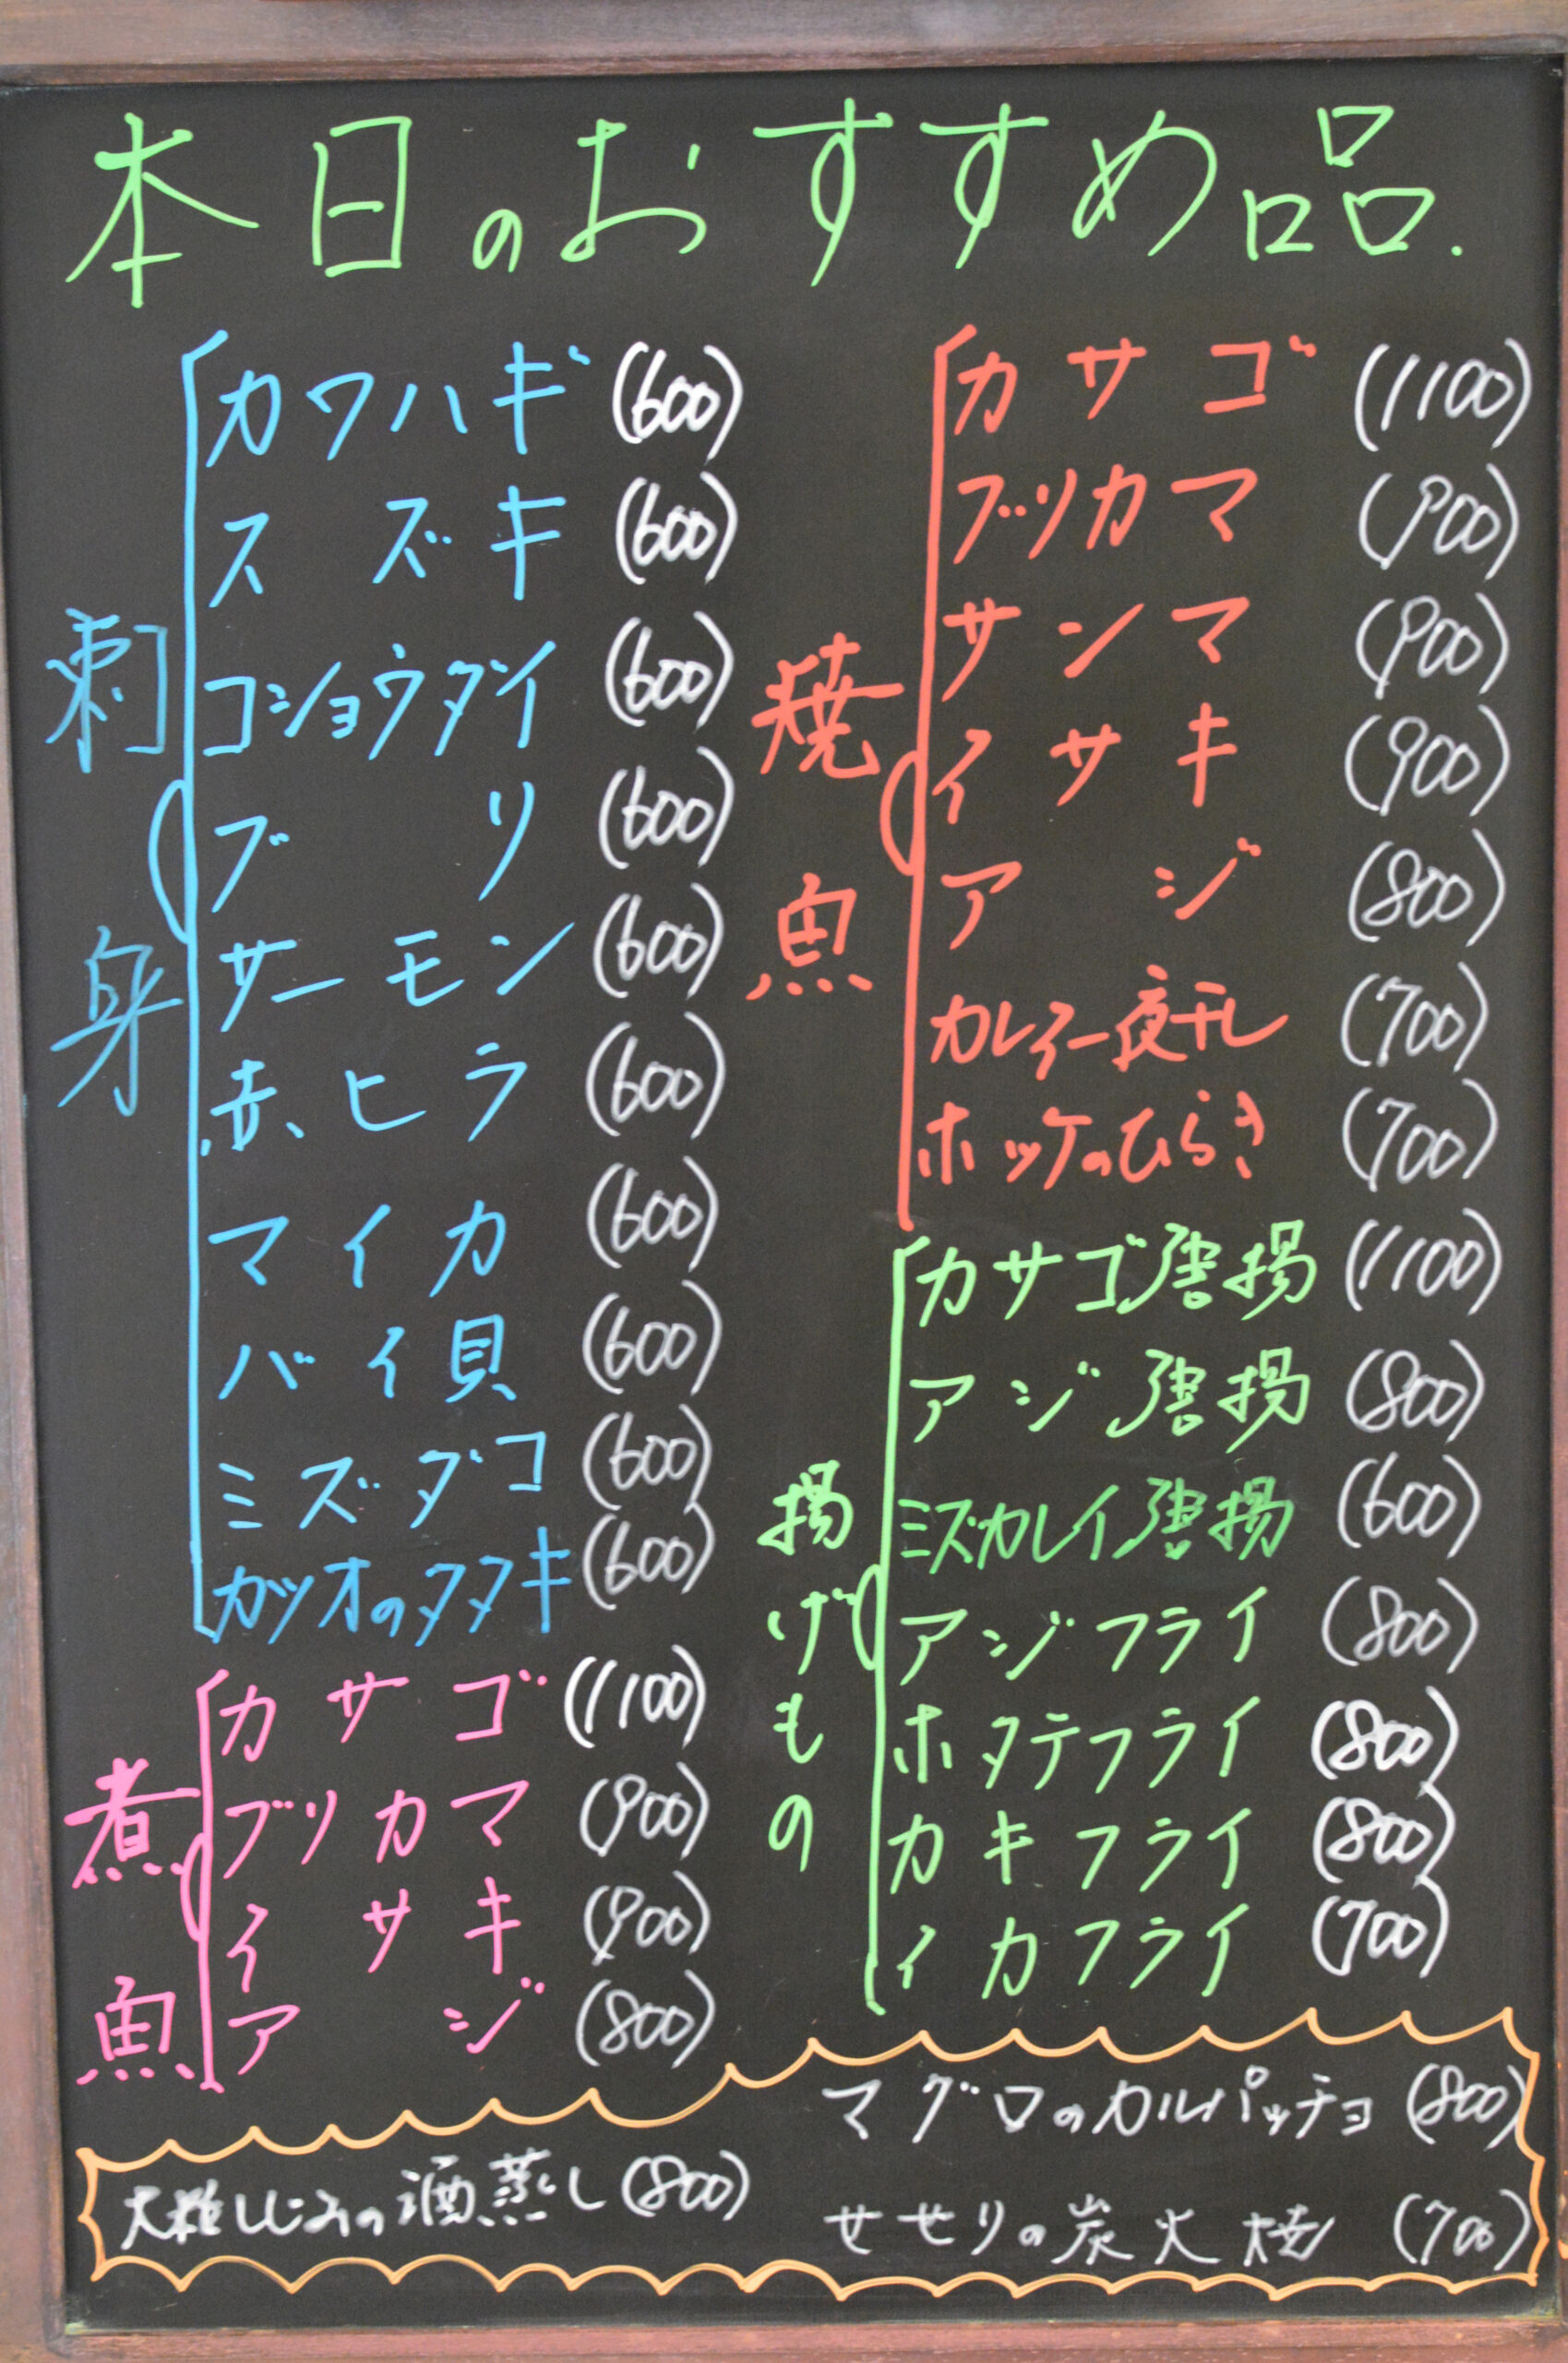 本日のおすすめ品.
刺身
カワハギ (600)
スズキ (600)
コショウダイ (600)
ブリ (600)
サーモン (600)
赤ヒラ (600)
マイカ (600)
バイ貝 (600)
ミズダコ (600)
カツオのタタキ (600)
煮魚
カサゴ (1100)
ブリカマ (900)
イサキ (900)
アジ (800)
焼魚
カサゴ (1100)
ブリカマ (900)
サンマ (900)
イサキ (900)
アジ (800)
カレイ一夜干し (700)
ホッケのひらき (700)
揚げもの
カサゴ唐揚 (1100)
アジ唐揚 (800)
ミズカレイ唐揚 (600)
アジフライ (800)
ホタテフライ (800)
カキフライ (800)
イカフライ (700)
大粒しじみの酒蒸し (800)
マグロのカルパッチョ (800)
せせりの炭火焼 (700)